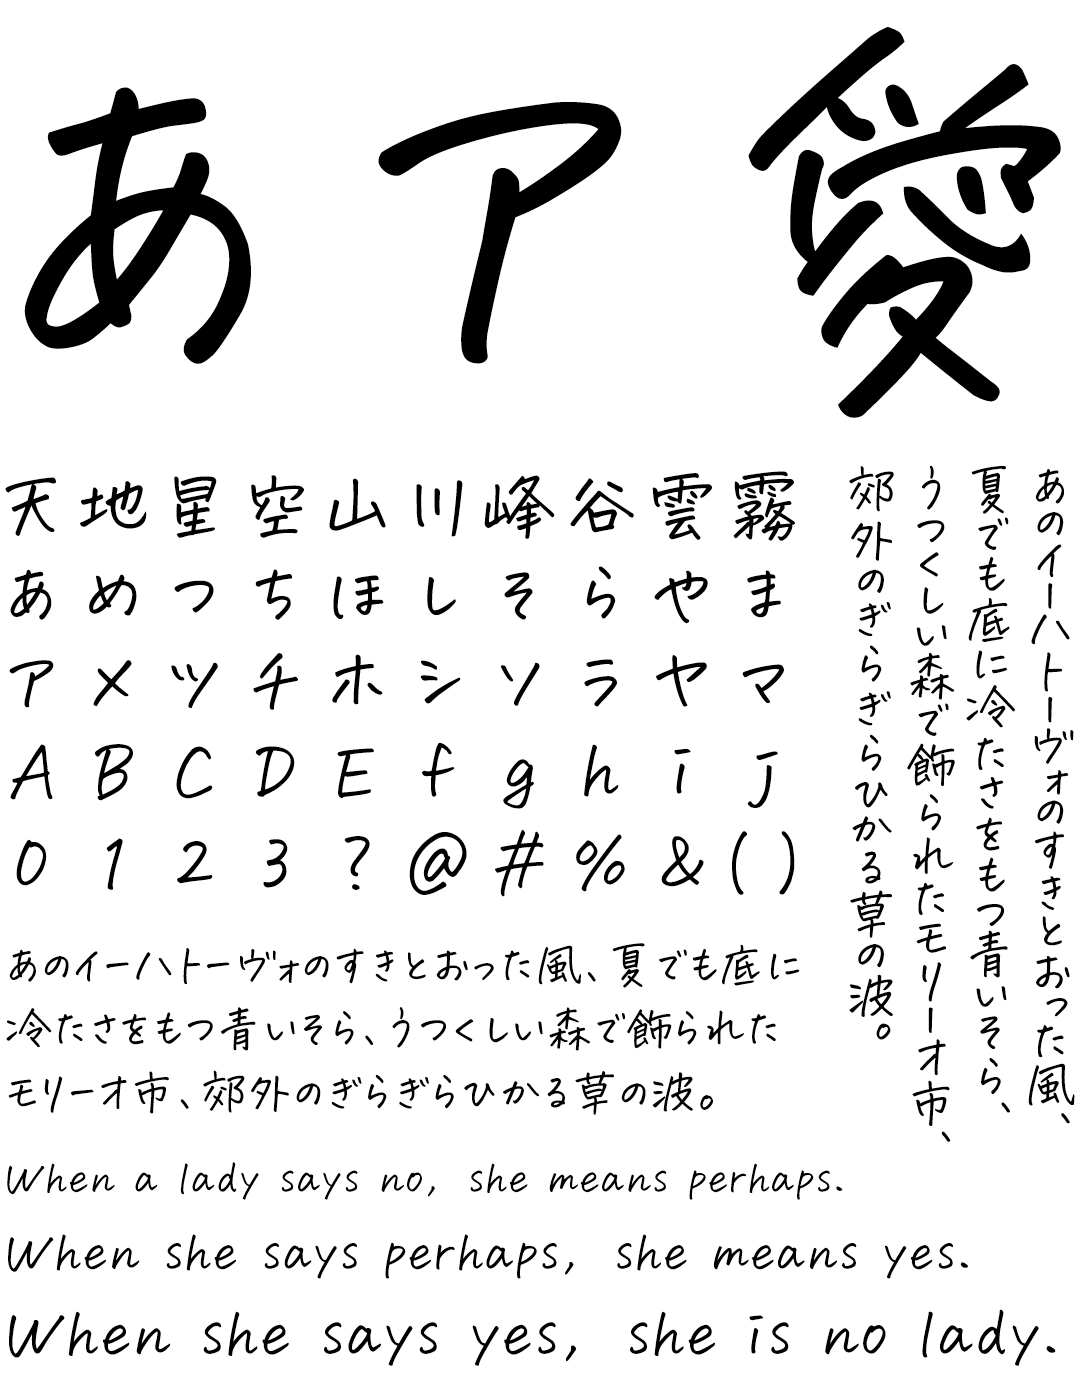 あア愛
天地星空山川峰谷雲霧
あめつちほしそらやま
アメツチホシソラヤマ
ABCDEfghij
0123?@#%&()
あのイーハトーヴォのすきとおった風、
夏でも底に冷たさをもつ青いそら、
うつくしい森で飾られたモリーオ市、
郊外のぎらぎらひかる草の波。
あのイーハトーヴォのすきとおった風、夏でも底に
冷たさをもつ青いそら、うつくしい森で飾られた
モリーオ市、郊外のぎらぎらひかる草の波。
When a lady says no, she means perhaps.
When she says perhaps, she means yes.
When she says yes, she is no lady.